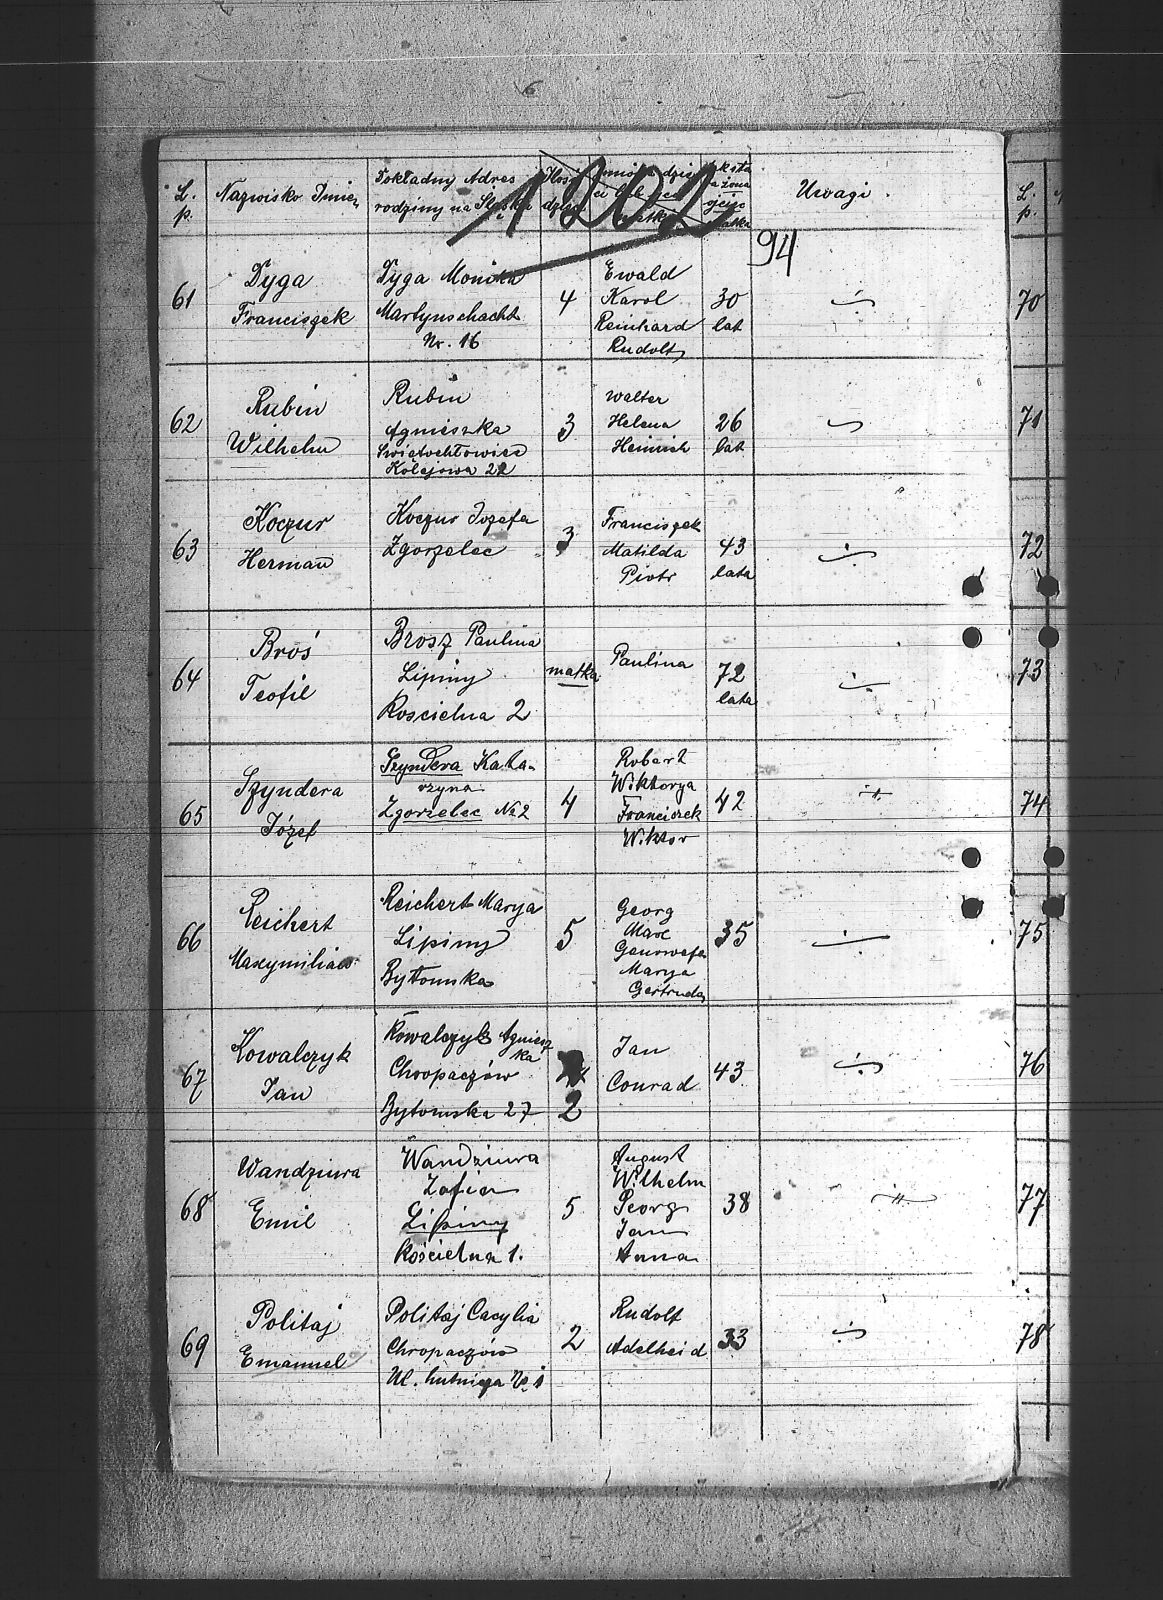 L. p.
Nazwisko Imię
Dokładny Adres
rodziny na Śląsku
Ilość
dzieci
Uwagi.
1202
94
61
Dyga
Franciszek
Dyga Monika
Martynschacht
Nr. 16
4
Ewald
Karol
Reinhard
Rudolf
30
lat
62
Rubin
Wilhelm
Rubin
Agnieszka
Świętochłowice
Kolejowa 22
3
Walter
Helena
Heinrich
26
lat
63
Koczur
Herman
Koczur Jozefa
Zgorzelec
3
Franciszek
Matilda
Piotr
43
lata
64
Broś
Teofil
Brosz Paulina
Lipiny
Koscielna 2
matka
Paulina
72
lata
65
Szyndera
Józef
Szyndera Kata-
rzyna
Zgorzelec No 2
4
Robert
Wiktorya
Franciszek
Wiktor
42
66
Reichert
Maxymilian
Reichert Marya
Lipiny
Bytomska
5
Georg
Max
Genowefa
Marya
Gertruda
35
67
Kowalczyk
Jan
Kowalczyk Agniesz
ka
Chropaczów
Bytomska 27
2
Jan
Conrad
43
68
Wandziura
Emil
Wandziura
Zofia
Lipiny
Kościelna 1.
5
August
Wilhelm
Georg
Jan
Anna
38
69
Politaj
Emanuel
Politaj Cacylia
Chropaczów
Ul. hutnicza No 1
2
Rudolf
Adelheid
33
L. p.
70
71
72
73
74
75
76
77
78